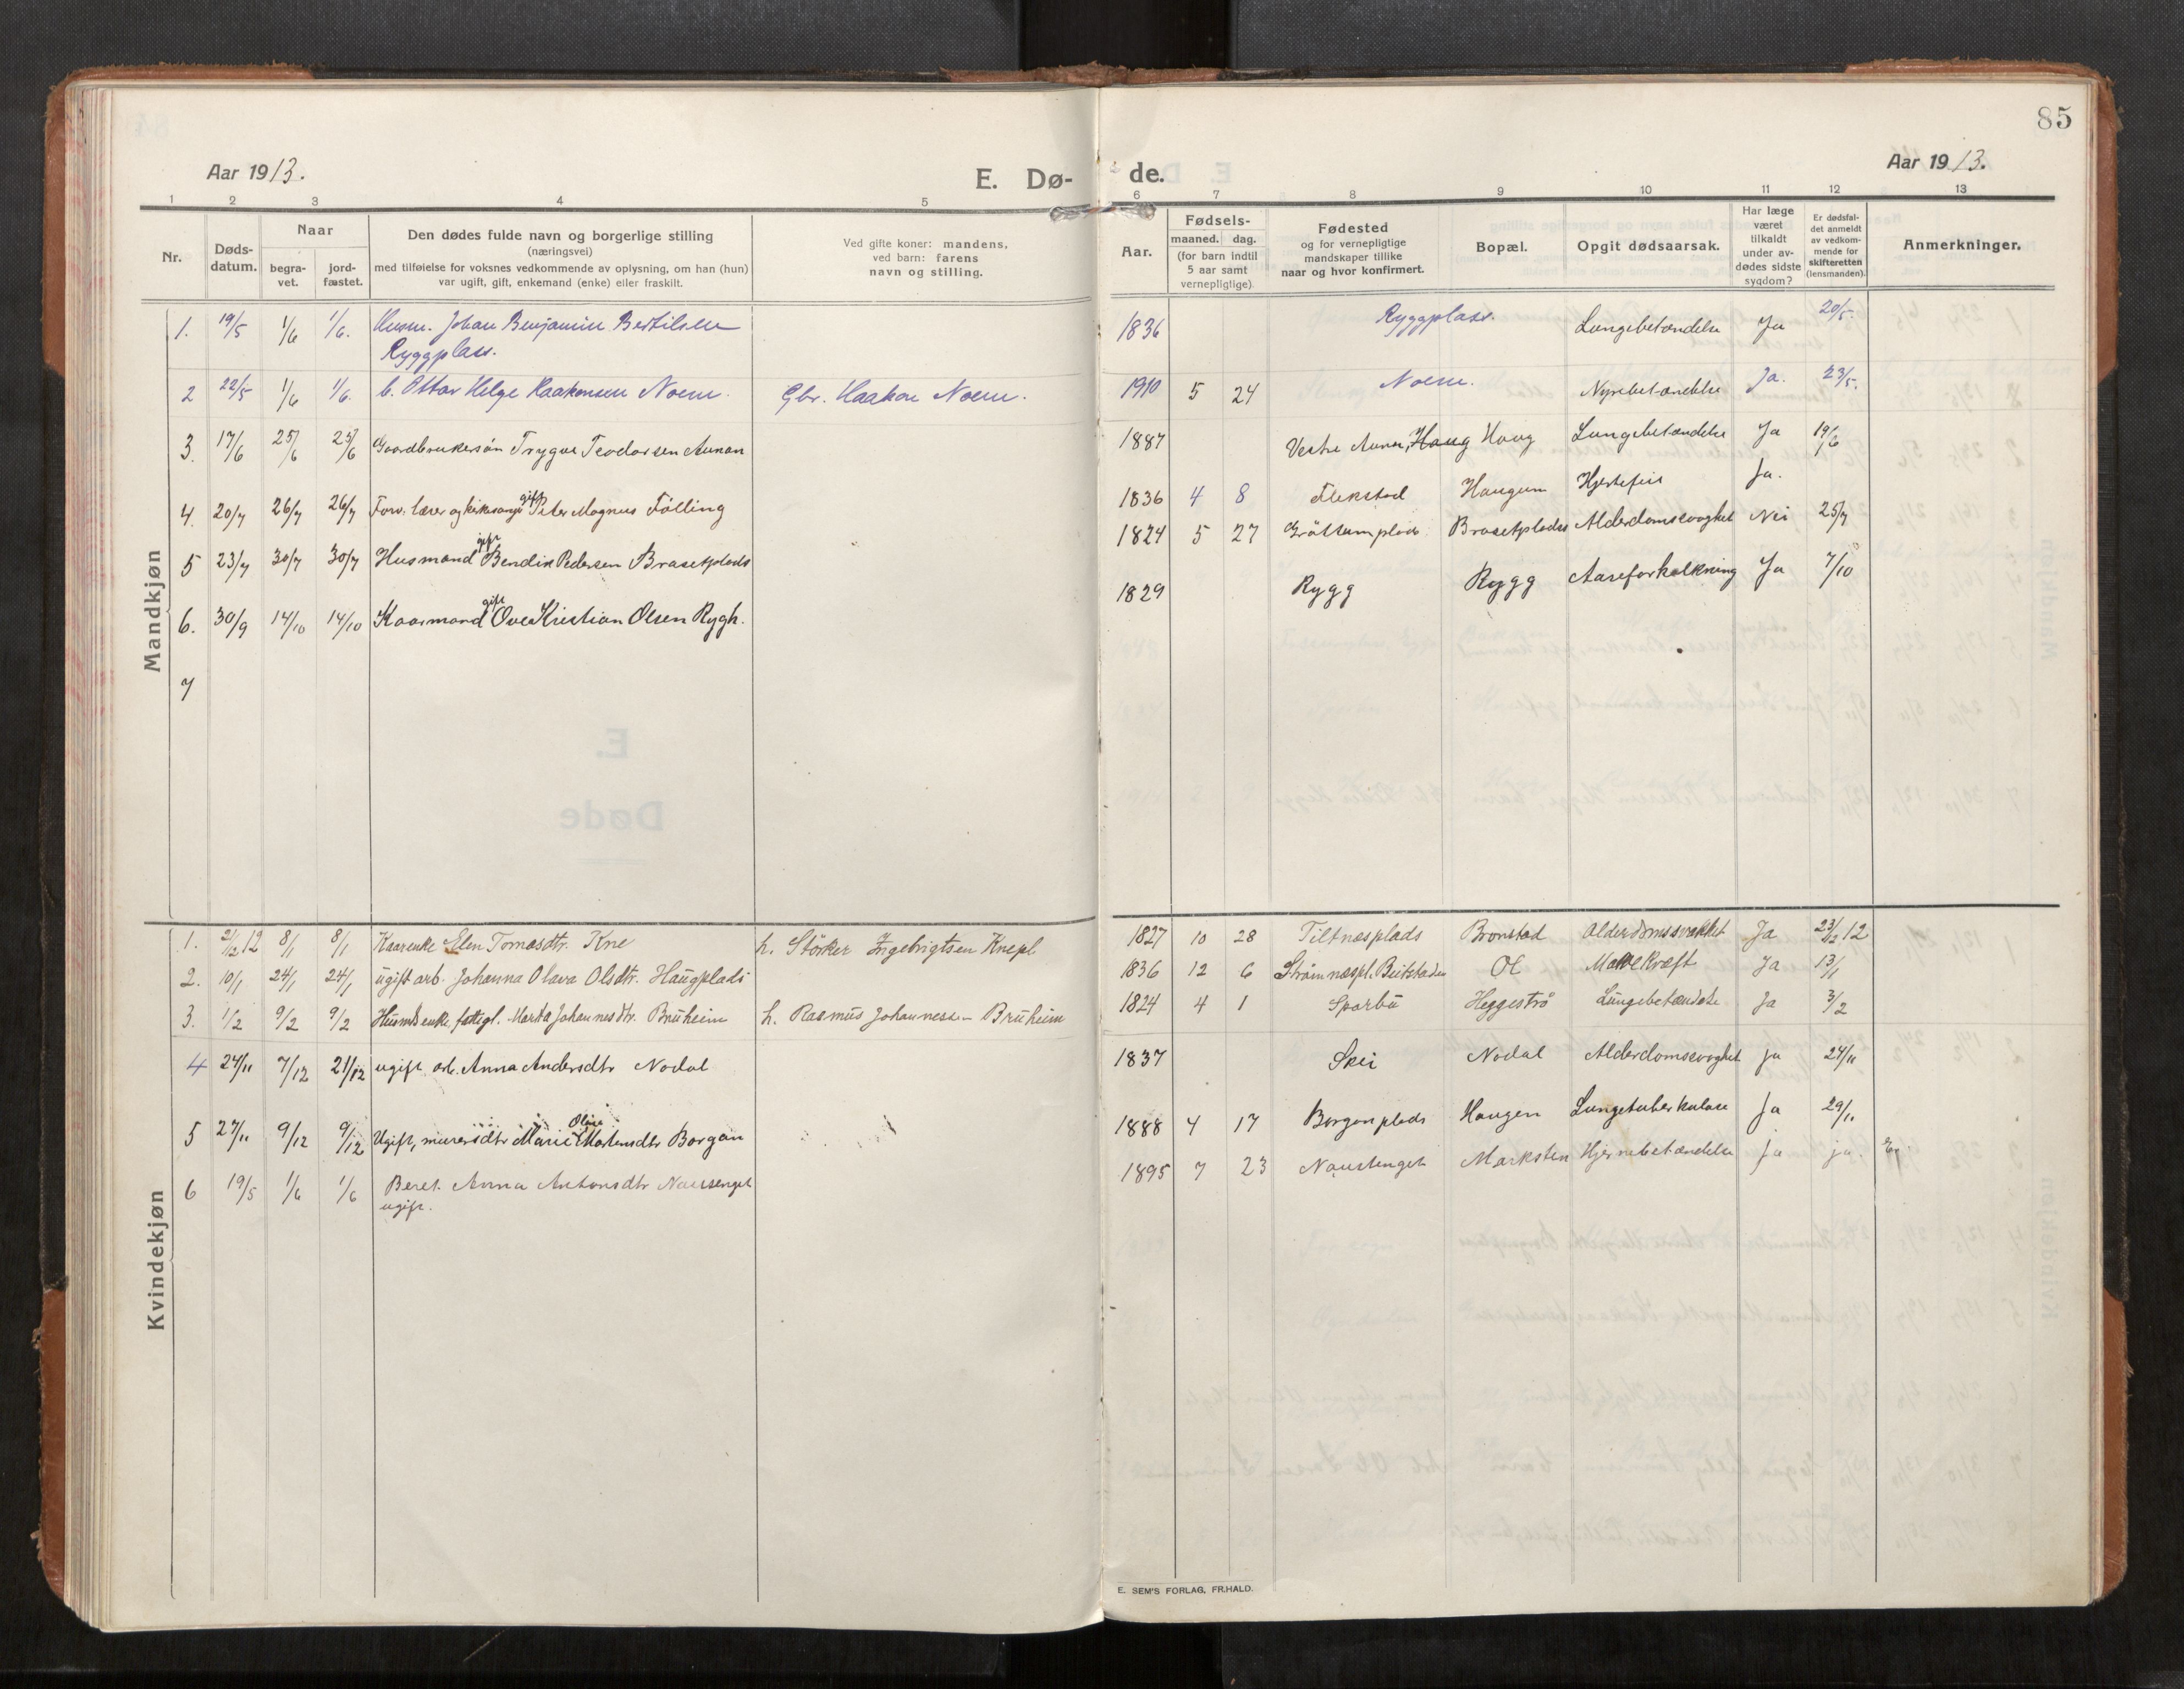 85
Aar 1913.
E. Dø-
de.
Aar 1913.
1 2 3 4 5 6 7 8 9 10 11 12 13
Nr.
Døds-
datum.
Naar
begra-
vet.
jord-
fæstet.
Den dødes fulde navn og borgerlige stilling
(næringsvei)
med tilføielse for voksnes vedkommende av oplysning, om han (hun)
var ugift, gift, enkemand (enke) eller fraskilt.
Ved gifte koner: mandens,
ved barn: farens
navn og stilling.
Aar.
Fødsels-
maaned. dag.
(for barn indtil
5 aar samt
vernepligtige)
Fødested
og for vernepligtige
mandskaper tillike
naar og hvor konfirmert.
Bopæl.
Opgit dødsaarsak.
Har læge
været
tilkaldt
under av-
dødes sidste
sygdom?
Er dødsfal-
det anmeldt
av vedkom-
mende for
skifteretten
(lensmanden).
Anmerkninger.
Mandkjøn
1. 19/5 1/6 1/6. Husm. Johan Benjamin Bertilsen 1836 Ryggplass. Lungebetændelse Ja 20/5.
Ryggplass.
2 22/5 1/6 1/6. b. Ottar Helge Haakonsen Noem. Gbr. Haakon Noem. 1910 5 24 Noem. Nyrebetændelse Ja. 23/5.
3. 17/6 25/6 25/6 Gaardbrukersøn Trygve Teodorsen Aunan 1887 Vestre Aunan, Haug Haug Lungebetændelse Ja 19/6
4. 20/7 26/7 26/7 Forv. lærer og kirkesanger gift Peter Magnus Følling 1836 4 8 Flekstad Haugum Hjertefeil Ja.
5 23/7 30/7 30/7 Husmand gift Bendik Pedersen Brasetplads 1824 5 27 Grøttumplads Brasetplads Alderdomssvaghet Nei 25/7
6. 30/9 14/10 14/10 Kaarmand gift Ove Kristian Olsen Rygh. 1829 Rygg Rygg Aareforkalkning Ja 7/10
7
Kvindekjøn
1. 21/12 12 8/1 8/1 Kaarenke Elen Tomasdtr. Kne h. Störker Ingebrigtsen Knepl 1827 10 28 Tiltnæsplads Brønstad Alderdomssvakhet Ja 23/12 12
2. 10/1 24/1 24/1 ugift arb. Johanna Olava Olsdtr. Haugplads 1836 12 6 Strømnæspl. Beitstaden Ol Mavekræft Ja 13/1
3. 1/2 9/2 9/2 Husmdsenke fattigl. Marta Johannesdtr. Bruheim h. Rasmus Johannessen Bruheim 1824 4 1 Sparbu Heggestrø Lungebetændelse Ja 3/2
4 24/11 7/12 21/12 ugift arb. Anna Andersdtr Nodal 1837 Skei Nodal Alderdomssvaghet ja 24/11
5 27/11 9/12 9/12 Ugift, murersdtr Marie Oline Martensdtr Borgan 1888 4 17 Borganplads Haugen Lungetuberkulose Ja 29/11
6 19/5 1/6 1/6 Beret Anna Antonsdtr Naustenget 1895 7 23 Naustenget Marksten Hjernebetændelse Ja ja.
ugift.
E. SEM'S FORLAG, FR.HALD.